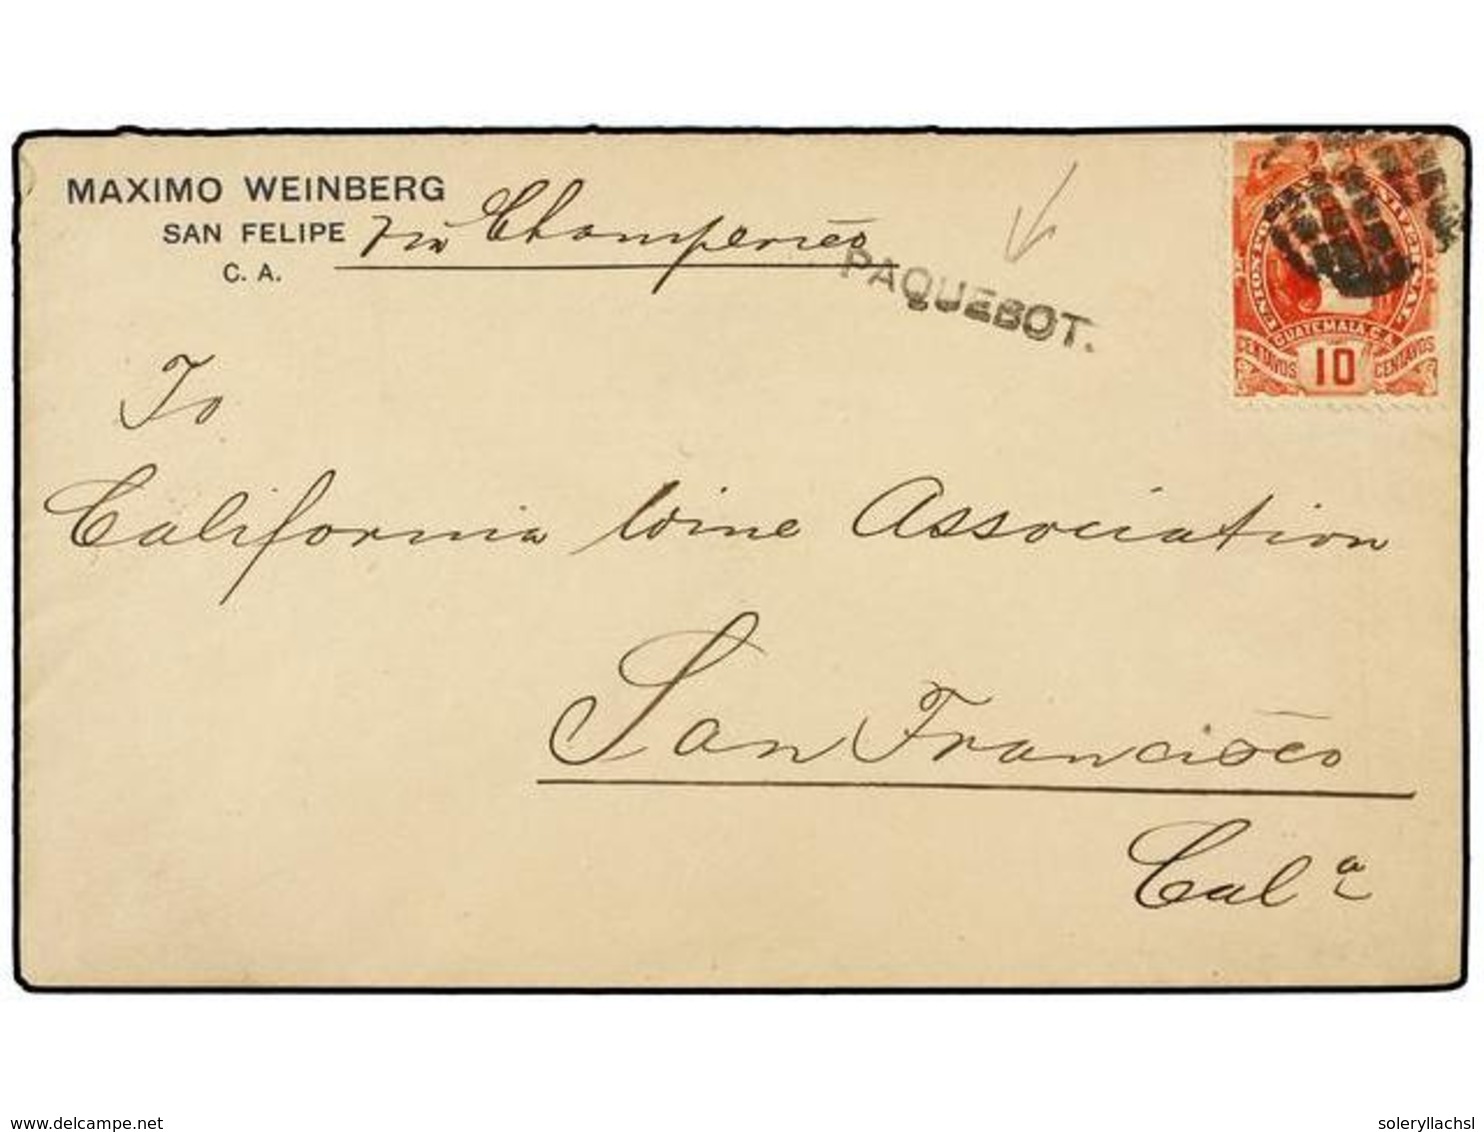 MAXIMO WEINBERG
SAN FELIPE
C. A.
via Champerico
PAQUEBOT.
UNION POSTAL UNIVERSAL
GUATEMALA C.A.
CENTAVOS 10 CENTAVOS
To
California Wine Association
San Francisco
Cal a
www.delcampe.net
soleryllachsl